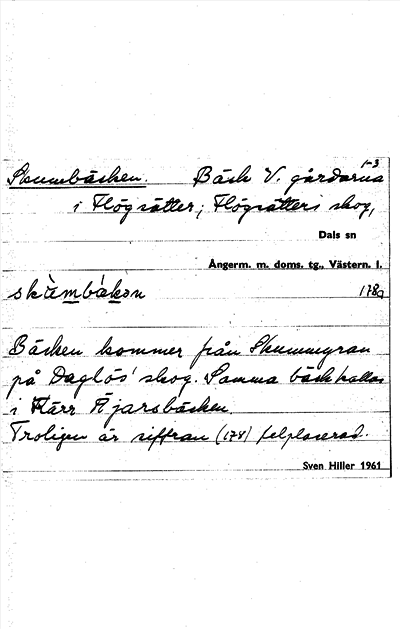 1-3
Skumbäcken. Bäck V. gårdarna
i Högsätter; Högsätters skog,
Dals sn
Ångerm. m. doms. tg., Västern. l.
178a
Bäcken kommer från Skummyran
på Daglös' skog. Samma bäck kallas
i Kärr Åjarsbäcken.
Troligen är siffran (178) felplacerad.
Sven Hiller 1961